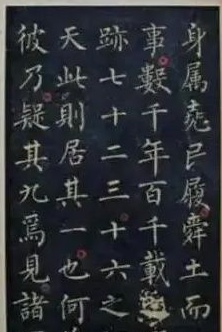 身属堯民履舜土而
事數千年百千載
跡七十二三十六之
天此則居其一也何
彼乃疑其九焉見諸